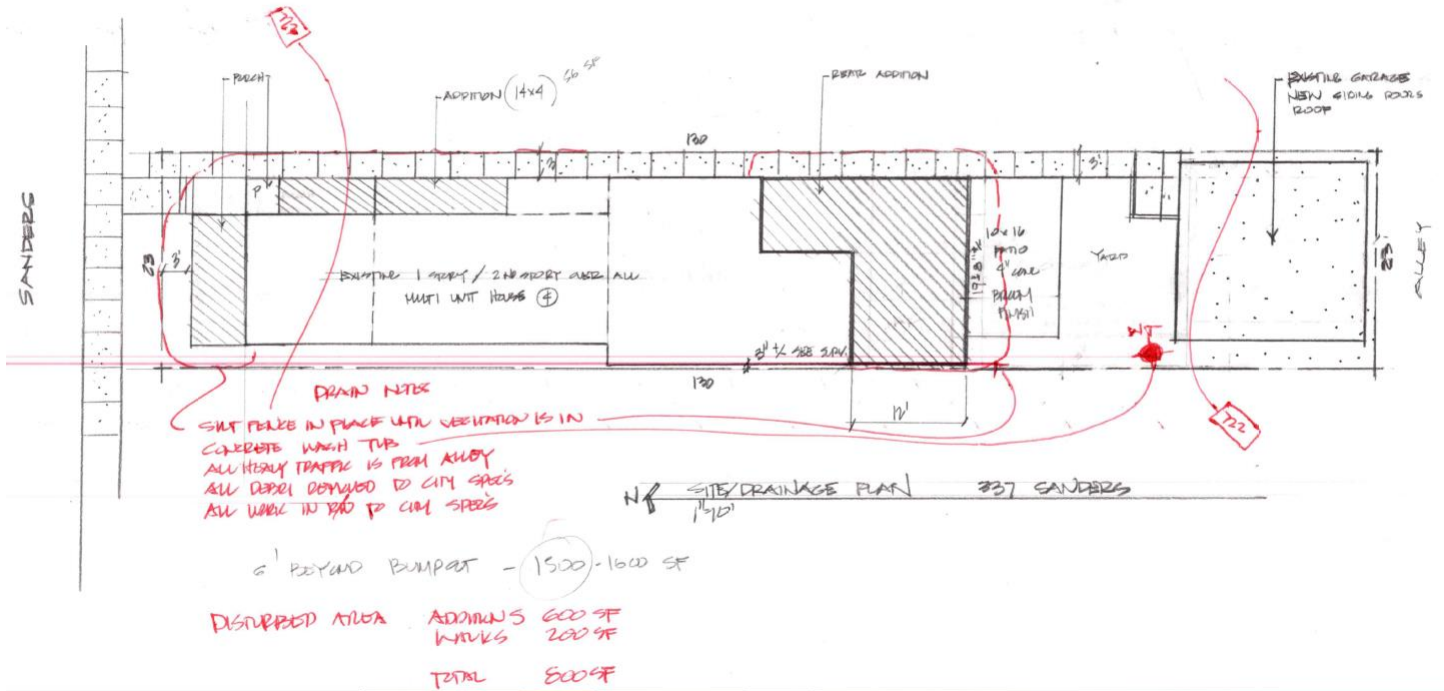 PORCH
ADDITION (14x4) 56 SF
REAR ADDITION
EXISTING GARAGE
NEW SIDING DOORS
ROOF
130
3'
3'
P
SANDERS
23
3'
EXISTING 1 STORY / 2ND STORY OVER ALL
MULTI UNIT HOUSE 4
10x16
PATIO
4" CONC
BROOM
FINISH
YARD
23'
ALLEY
WT
130
12'
722
DRAIN NOTES
SILT FENCE IN PLACE UNTIL VEGITATION IS IN
CONCRETE WASH TUB
ALL HEAVY TRAFFIC IS FROM ALLEY
ALL DEBRI REMOVED TO CITY SPEC'S
ALL WORK IN R/W TO CITY SPECS
N SITE/DRAINAGE PLAN 337 SANDERS
1"=10'
6' BEYOND BUMPOUT - 1500 - 1600 SF
DISTURBED AREA ADDITIONS 600 SF
WALKS 200 SF
TOTAL 800 SF